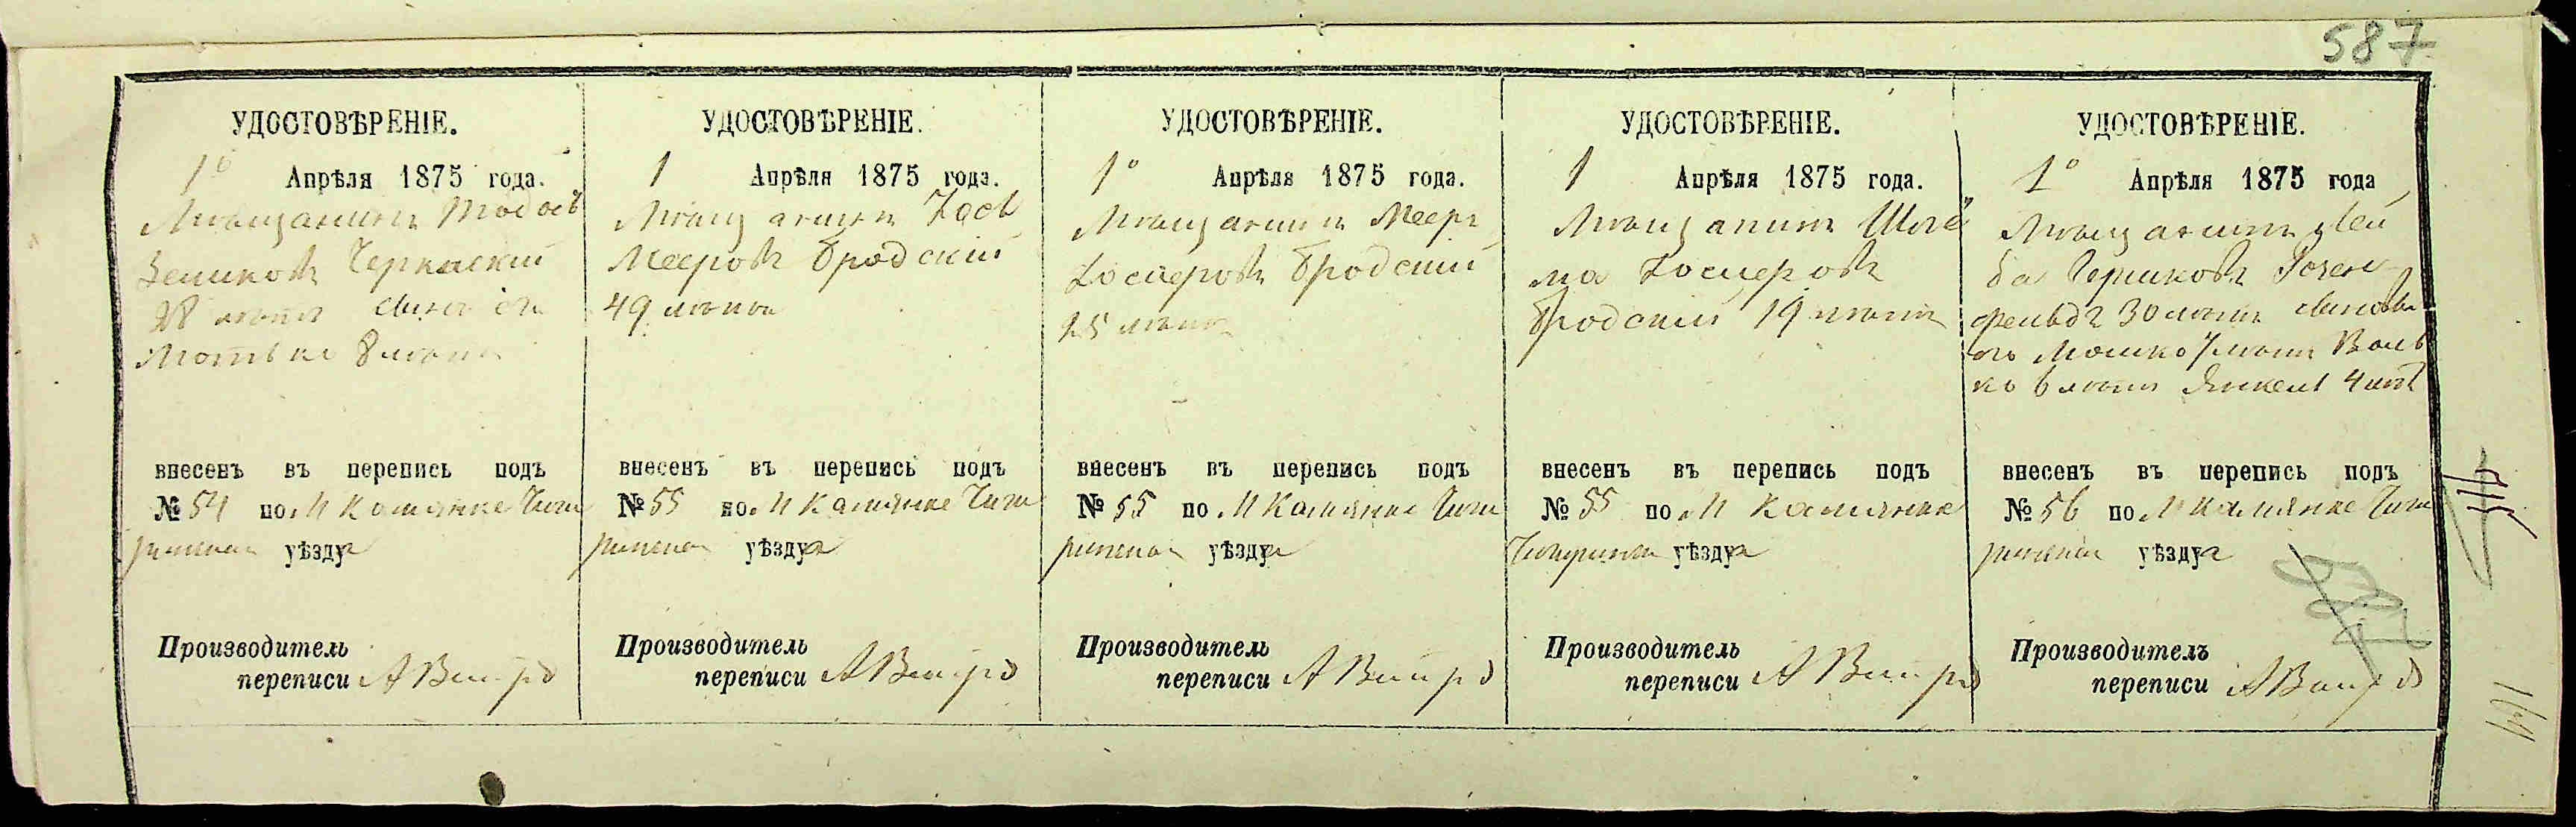 587
УДОСТОВѢРЕНІЕ.
1º Апрѣля 1875 года.
Мѣщанинъ Тодос
Зеликовъ Черкаскій
28 лѣтъ сынъ его
Мотько 8 лѣтъ
внесенъ въ перепись подъ
№ 54 по М Камянке Чиги
ринска уѣзда
Производитель
переписи А
УДОСТОВѢРЕНІЕ.
1 Апрѣля 1875 года.
Мѣщанинъ
Мееровъ Бродскій
49 лѣтъ
внесенъ въ перепись подъ
№ 55 по М Камянке Чиги
ринска уѣзда
Производитель
переписи А
УДОСТОВѢРЕНІЕ.
1º Апрѣля 1875 года.
Мѣщанинъ Меер
Бродскій
25 лѣтъ
внесенъ въ перепись подъ
№ 55 по М Камянке Чиги
ринска уѣзда
Производитель
переписи А
УДОСТОВѢРЕНІЕ.
1 Апрѣля 1875 года.
Мѣщанинъ Шлё
ма
Бродскій 19 лѣтъ
внесенъ въ перепись подъ
№ 55 по М Камянке
Чигиринска уѣзда
Производитель
переписи А
УДОСТОВѢРЕНІЕ.
1º Апрѣля 1875 года
Мѣщанинъ Лей
ба Гершковъ Розен
фельдъ 30 лѣтъ сыновья
его Мошко 7 лѣтъ Воль
ко 6 лѣтъ Янкель 4 лѣт
внесенъ въ перепись подъ
№ 56 по М Камянке Чиги
ринска уѣзда
Производитель
переписи А